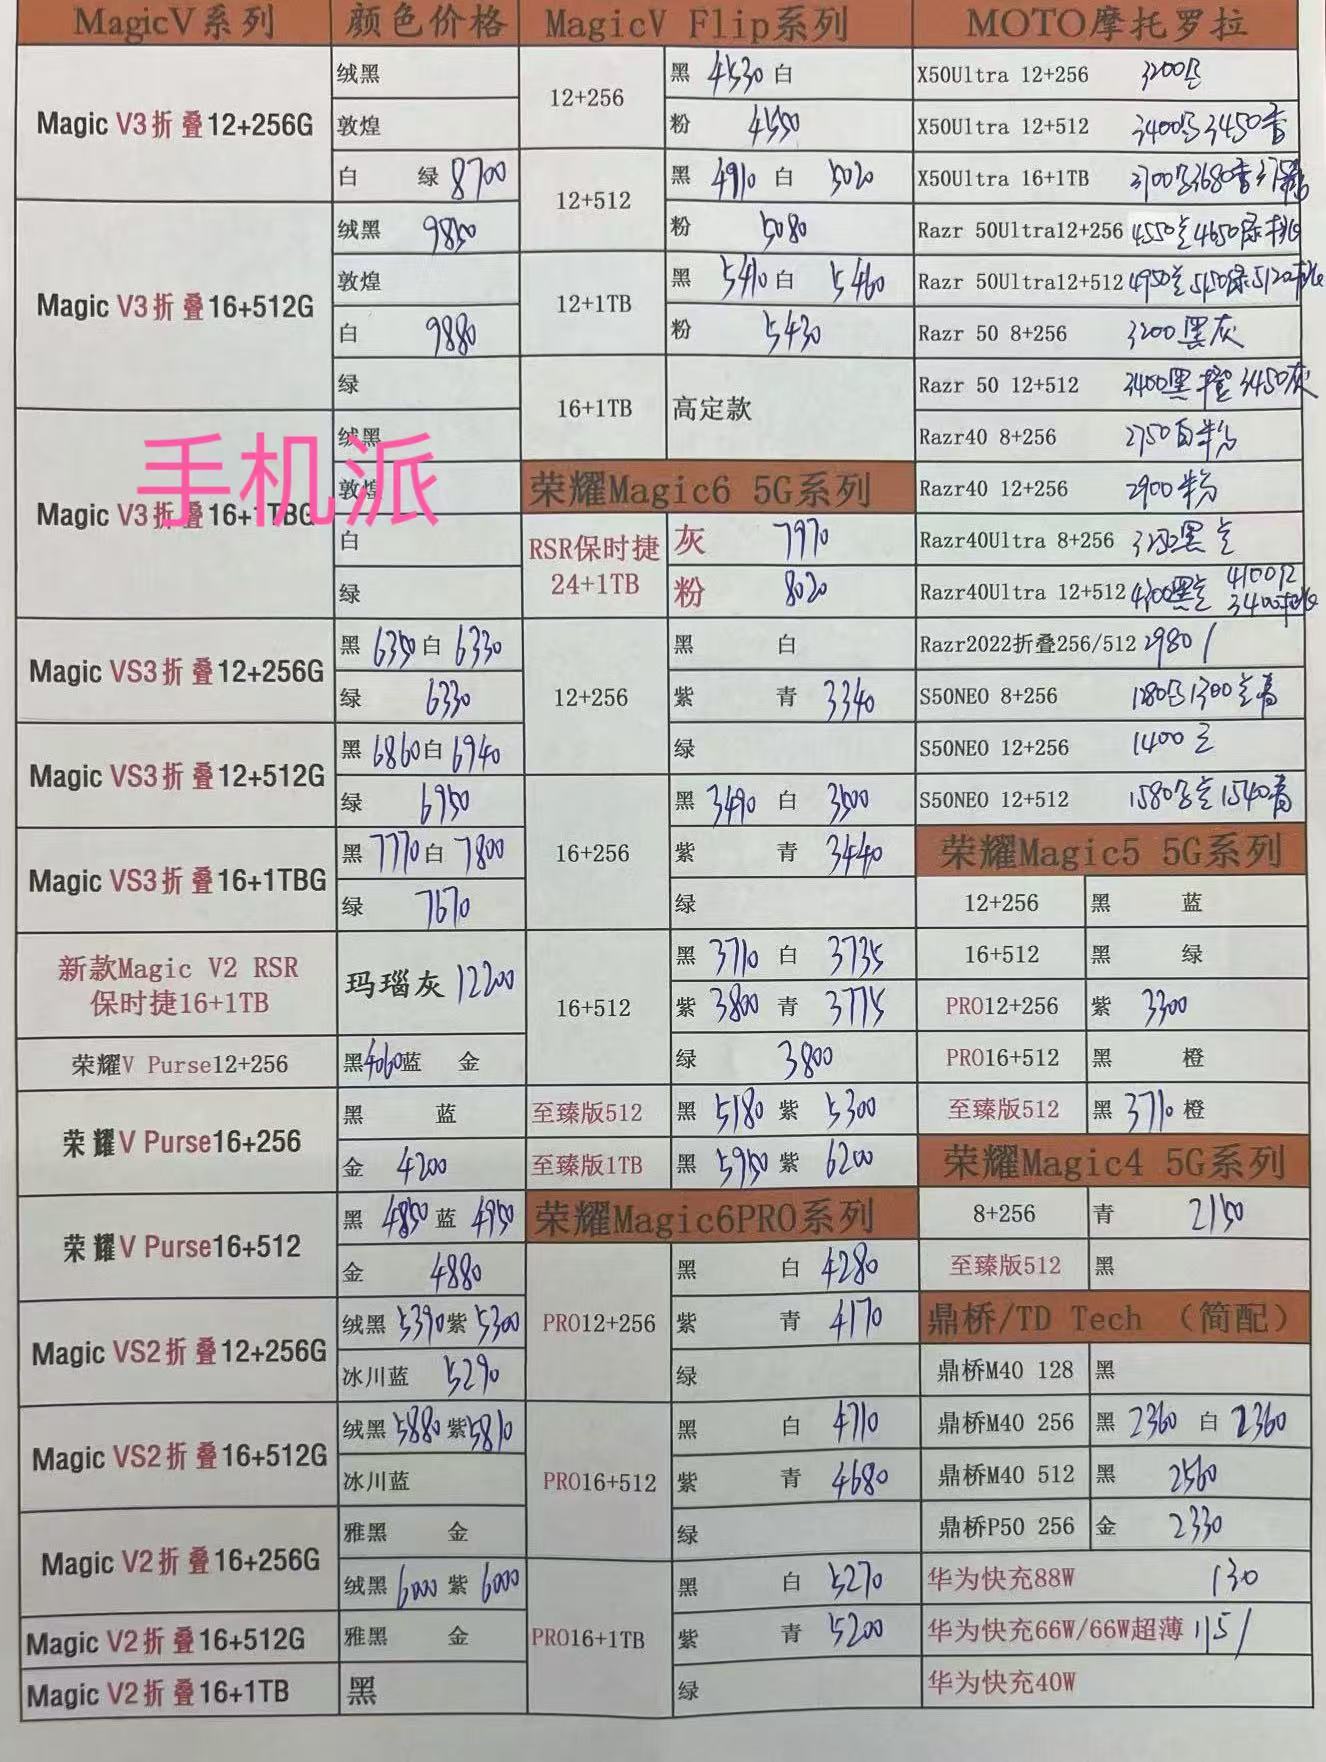 MagicV系列 颜色价格
Magic V3折叠12+256G
绒黑
敦煌
白 绿 8700
Magic V3折叠16+512G
绒黑 9850
敦煌
白 9880
绿
Magic V3折叠16+1TBG
绒黑
敦煌
白
绿
手机派
Magic VS3折叠12+256G
黑 6350 白 6330
绿 6330
Magic VS3折叠12+512G
黑 6860 白 6940
绿 6950
Magic VS3折叠16+1TBG
黑 7770 白 7800
绿 7670
新款Magic V2 RSR
保时捷16+1TB
玛瑙灰 12200
荣耀V Purse12+256 黑 4060 蓝 金
荣耀V Purse16+256
黑 蓝
金 4200
荣耀V Purse16+512
黑 4850 蓝 4950
金 4880
Magic VS2折叠12+256G
绒黑 5390 紫 5300
冰川蓝 5290
Magic VS2折叠16+512G
绒黑 5880 紫 5810
冰川蓝
Magic V2折叠16+256G
雅黑 金
绒黑 6000 紫 6000
Magic V2折叠16+512G 雅黑 金
Magic V2折叠16+1TB 黑
MagicV Flip系列
12+256
黑 4530 白
粉 4550
12+512
黑 4910 白 5020
粉 5080
12+1TB
黑 5410 白 5460
粉 5430
16+1TB 高定款
荣耀Magic6 5G系列
RSR保时捷
24+1TB
灰 7970
粉 8020
12+256
黑 白
紫 青 3340
绿
16+256
黑 3490 白 3500
紫 青 3440
绿
16+512
黑 3710 白 3735
紫 3800 青 3775
绿 3800
至臻版512 黑 5180 紫 5300
至臻版1TB 黑 5950 紫 6200
荣耀Magic6PRO系列
PRO12+256
黑 白 4280
紫 青 4170
绿
PRO16+512
黑 白 4710
紫 青 4680
绿
PRO16+1TB
黑 白 5270
紫 青 5200
绿
MOTO摩托罗拉
X50Ultra 12+256 3200
X50Ultra 12+512 3400 3450
X50Ultra 16+1TB 3700 3680
Razr 50Ultra12+256 4550 4650
Razr 50Ultra12+512 4950 5150 5120
Razr 50 8+256 3200黑灰
Razr 50 12+512 3400黑 3450灰
Razr40 8+256 2750白粉
Razr40 12+256 2900粉
Razr40Ultra 8+256 黑
Razr40Ultra 12+512 黑 4100 3400
Razr2022折叠256/512 2980 /
S50NEO 8+256 1280 1300
S50NEO 12+256 1400
S50NEO 12+512 1580 1540
荣耀Magic5 5G系列
12+256 黑 蓝
16+512 黑 绿
PRO12+256 紫 3300
PRO16+512 黑 橙
至臻版512 黑 3710 橙
荣耀Magic4 5G系列
8+256 青 2150
至臻版512 黑
鼎桥/TD Tech （简配）
鼎桥M40 128 黑
鼎桥M40 256 黑 2360 白 2360
鼎桥M40 512 黑 2560
鼎桥P50 256 金 2330
华为快充88W 130
华为快充66W/66W超薄 115 /
华为快充40W